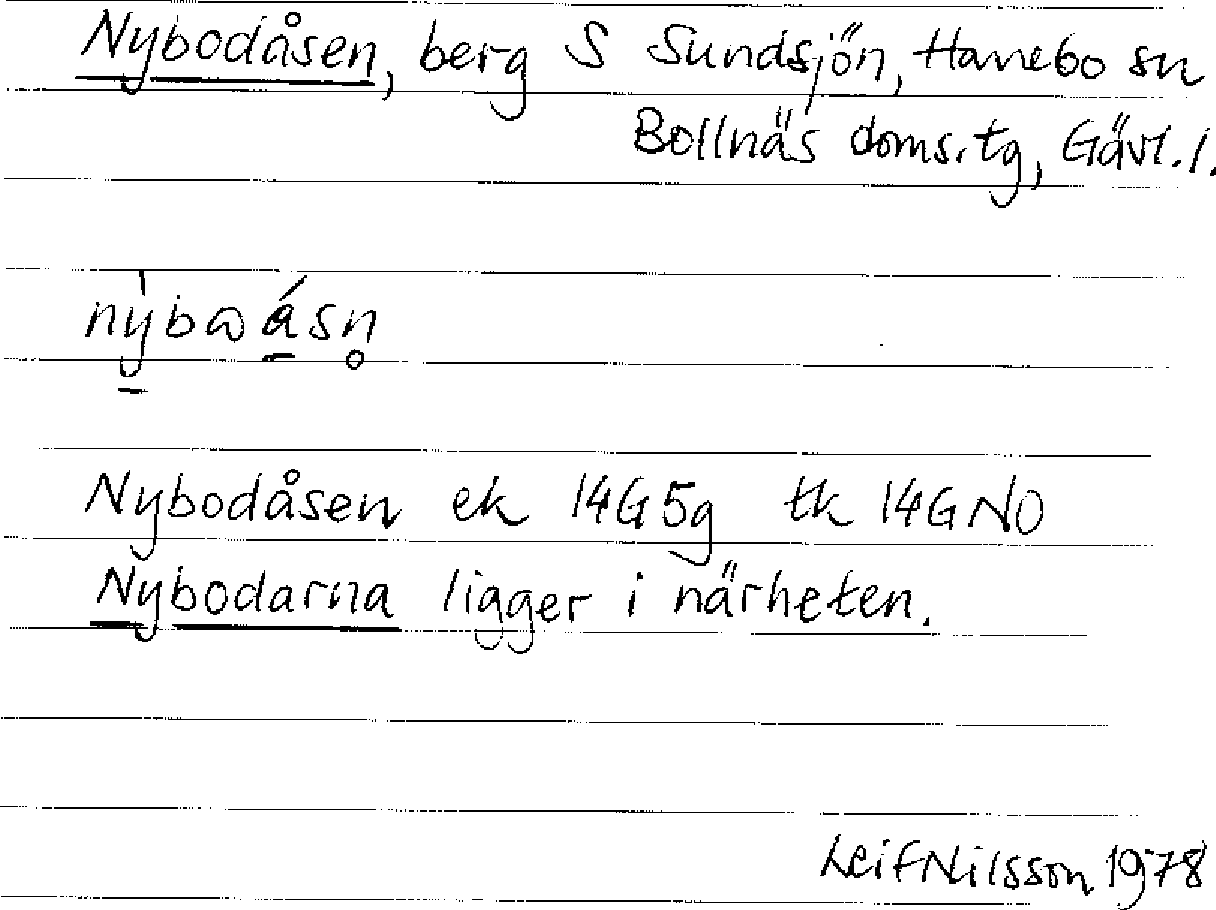 Nybodåsen, berg S Sundsjön, Hanebo sn
Bollnäs doms.tg, Gävl.l.
nỳbωásn̥
Nybodåsen ek 14G5g tk 14GNO
Nybodarna ligger i närheten.
Leif Nilsson 1978